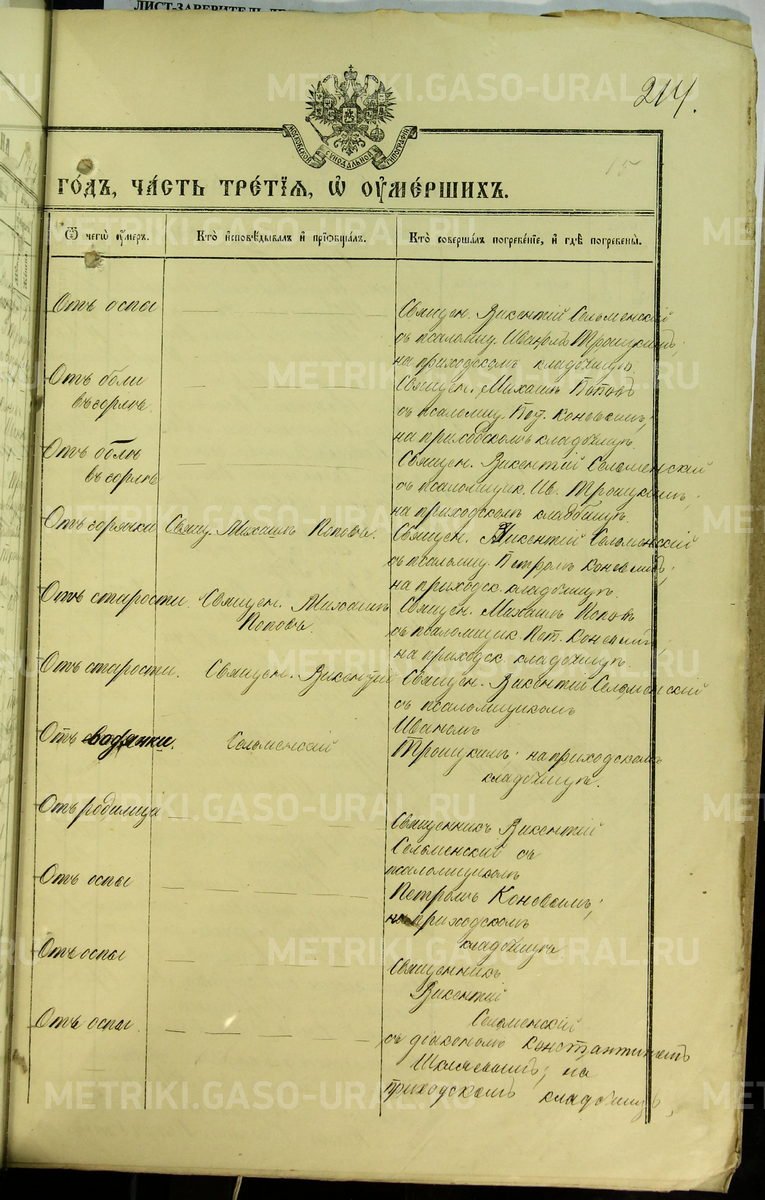 ЛИСТ-ЗАВЕРИТЕЛЬ
214.
15
МОСКОВСКОЙ СѴНОДАЛЬНОЙ ТИПОГРАФІИ
ГОДЪ, ЧАСТЬ ТРЕТІЯ, Ѡ ОУМЕРШИХЪ.
Ѿ чегѡ оумеръ.
Кто исповѣдывалъ и пріобщалъ.
Кто совершалъ погребеніе, и гдѣ погребены.
Отъ оспы
Священ. Викентій Сельменскій
съ псаломщ. Иваномъ Троицкимъ;
на приходскомъ кладбищѣ.
Отъ боли
въ горлѣ.
Священ. Михаилъ Поповъ
съ псаломщ. Пет. Коневымъ;
на приходскомъ кладбищѣ.
Отъ боли
въ горлѣ
Священ. Викентій Сельменскій
съ псаломщик. Ив. Троицкимъ;
на приходскомъ кладбищѣ.
Отъ горячки
Свящ. Михаилъ Поповъ.
Священ. Викентій Сельменскій
съ псаломщ. Петромъ Коневымъ;
на приходск. кладбищѣ.
Отъ старости.
Священ. Михаилъ
Поповъ.
Священ. Михаилъ Попов
съ псаломщик Пет. Коневымъ;
на приходск. кладбищѣ.
Отъ старости.
Священ. Викентій
Священ. Викентій Сельменскій
съ псаломщикомъ
Иваномъ
Отъ водянки.
Сельменскій
Троицкимъ; на приходскомъ
кладбищѣ.
Отъ родимца
Священникъ Викентій
Сельменскій съ
псаломщикомъ
Отъ оспы
Петромъ Коневымъ;
на приходскомъ
кладбищѣ
Отъ оспы
Священникъ
Викентій
Сельменскій
Отъ оспы.
съ діакономъ Константиномъ
Шкляевымъ; на
приходскомъ кладбищѣ,
METRIKI.GASO-URAL.RU